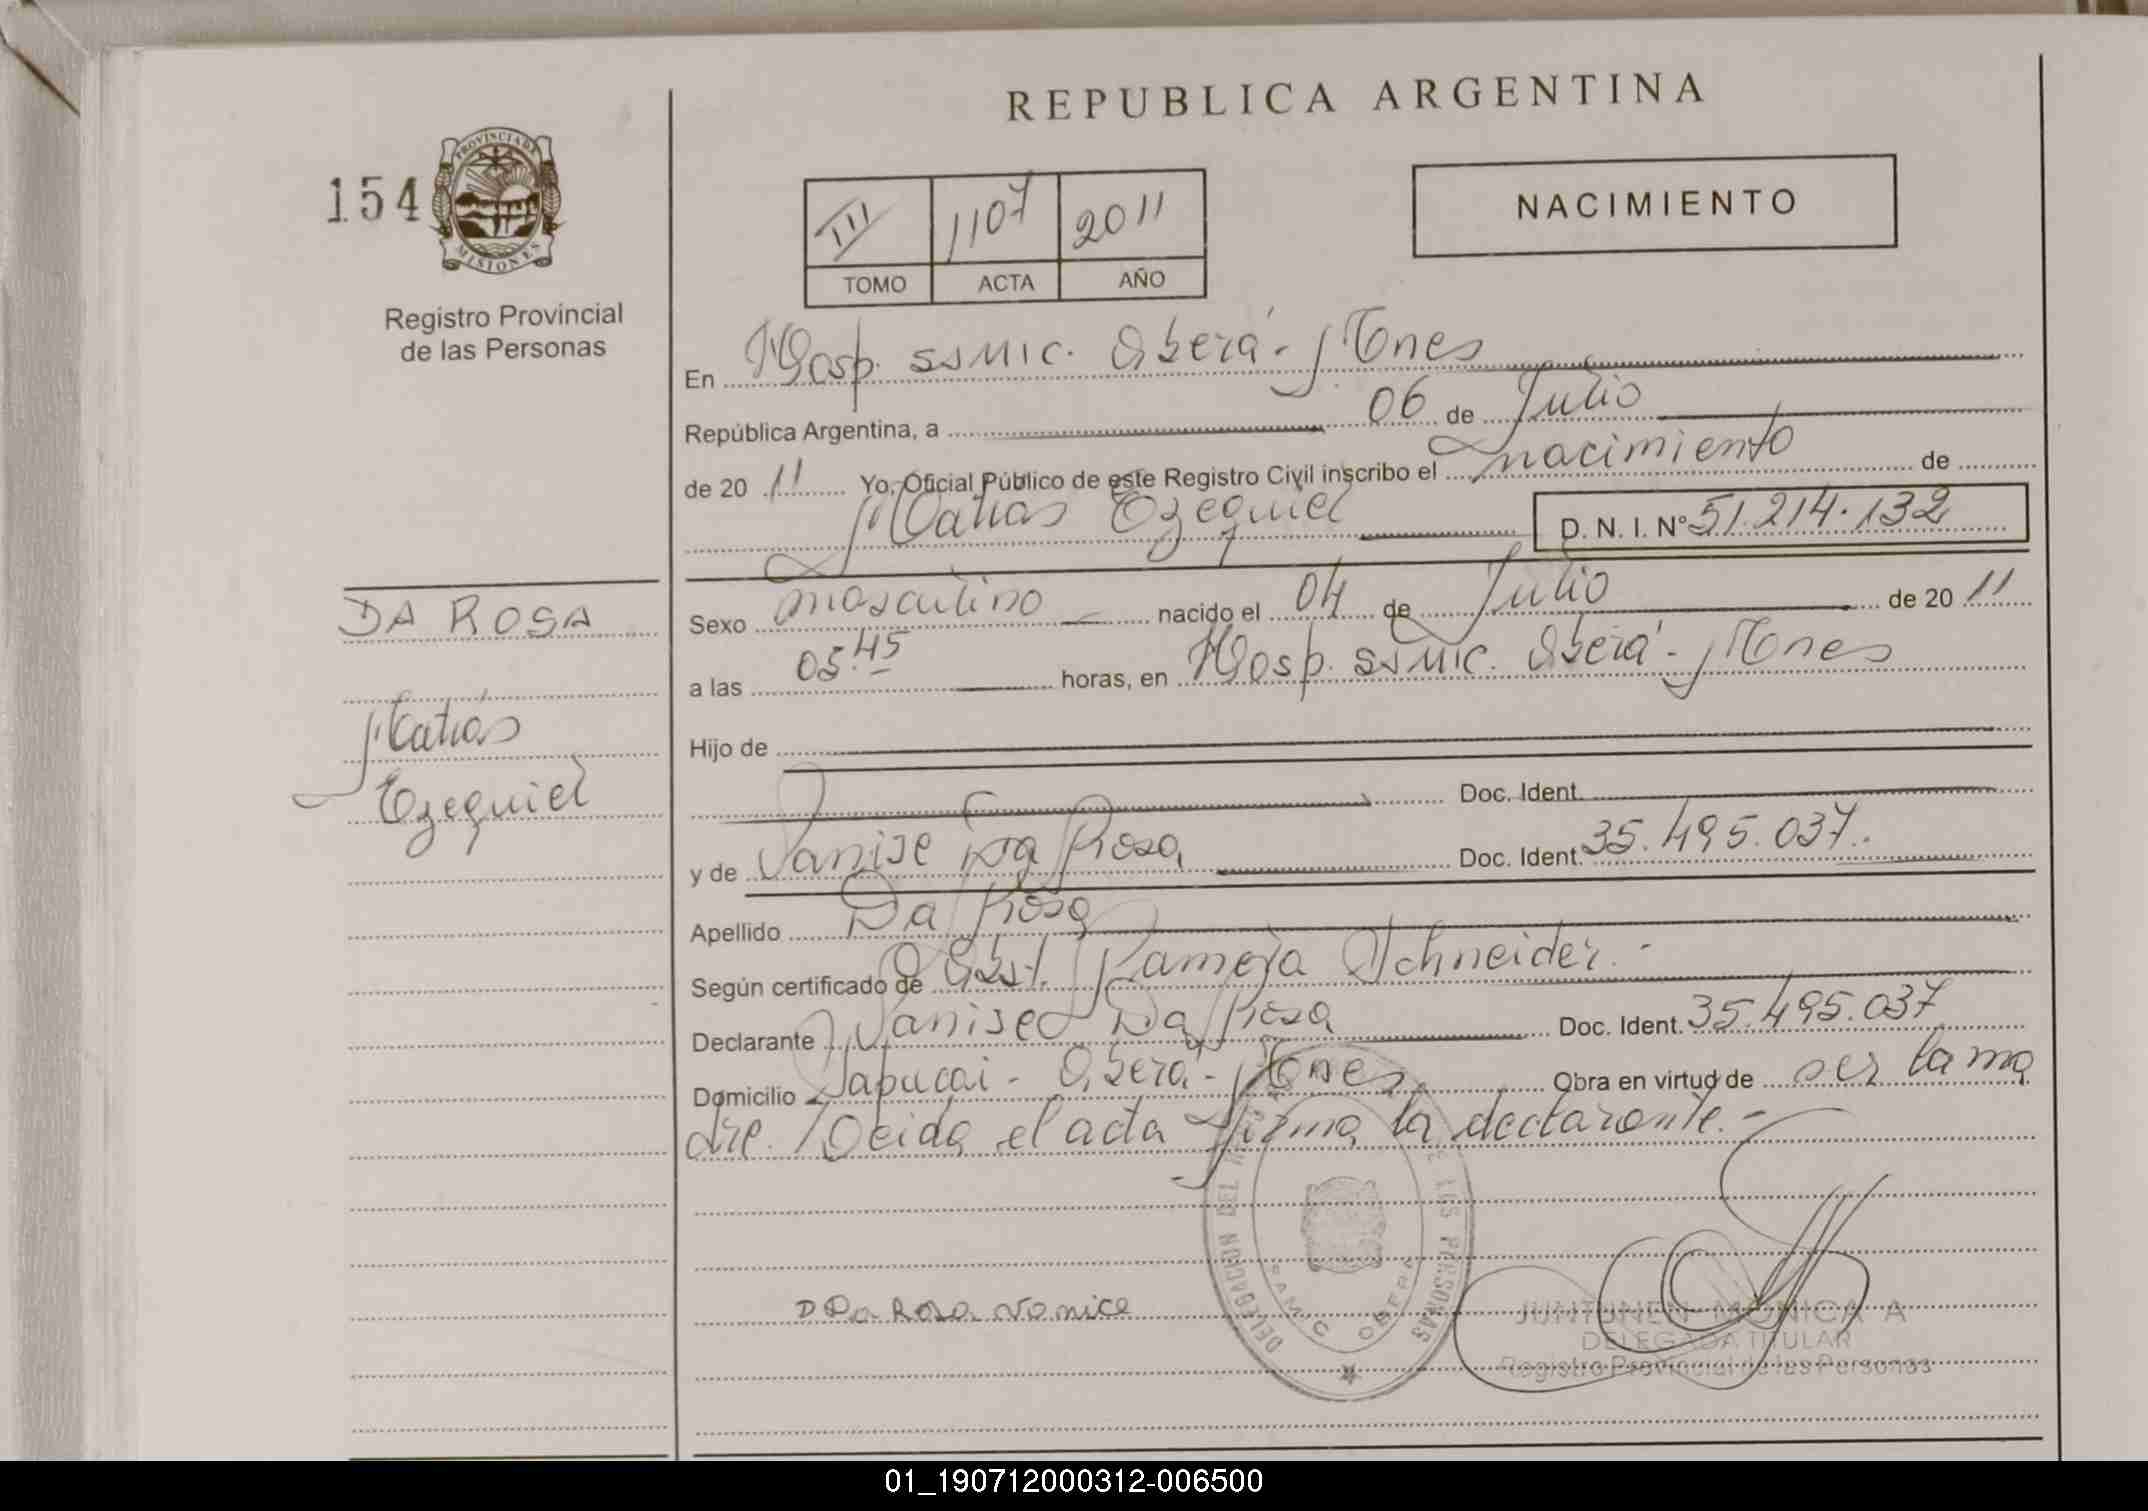 REPUBLICA ARGENTINA
154
PROVINCIA DE
MISIONES
Registro Provincial
de las Personas
III 1107 2011
TOMO ACTA AÑO
NACIMIENTO
En Hosp. SAMIC. Oberá - Mnes
República Argentina, a 06 de Julio
de 20 11 Yo, Oficial Público de este Registro Civil inscribo el nacimiento de
Matias Ezequiel D. N. I. Nº 51.214.132
DA ROSA
Matias
Ezequiel
Sexo masculino nacido el 04 de Julio de 20 11
a las 05.45 horas, en Hosp. SAMIC. Oberá - Mnes
Hijo de
Doc. Ident.
y de Vanise Da Rosa Doc. Ident. 35.495.037.
Apellido Da Rosa
Según certificado de Obst. Ramona Schneider.-
Declarante Vanise Da Rosa Doc. Ident. 35.495.037
Domicilio Sapucai - Oberá - Mnes. Obra en virtud de ser la ma
dre. Leida el acta firma la declarante.-
DELEGACION DEL DE LAS PERSONAS
SAMIC OBERA
Da Rosa Vanice
JUNTUNEN MONICA A
DELEGADA TITULAR
Registro Provincial de las Personas
01_190712000312-006500